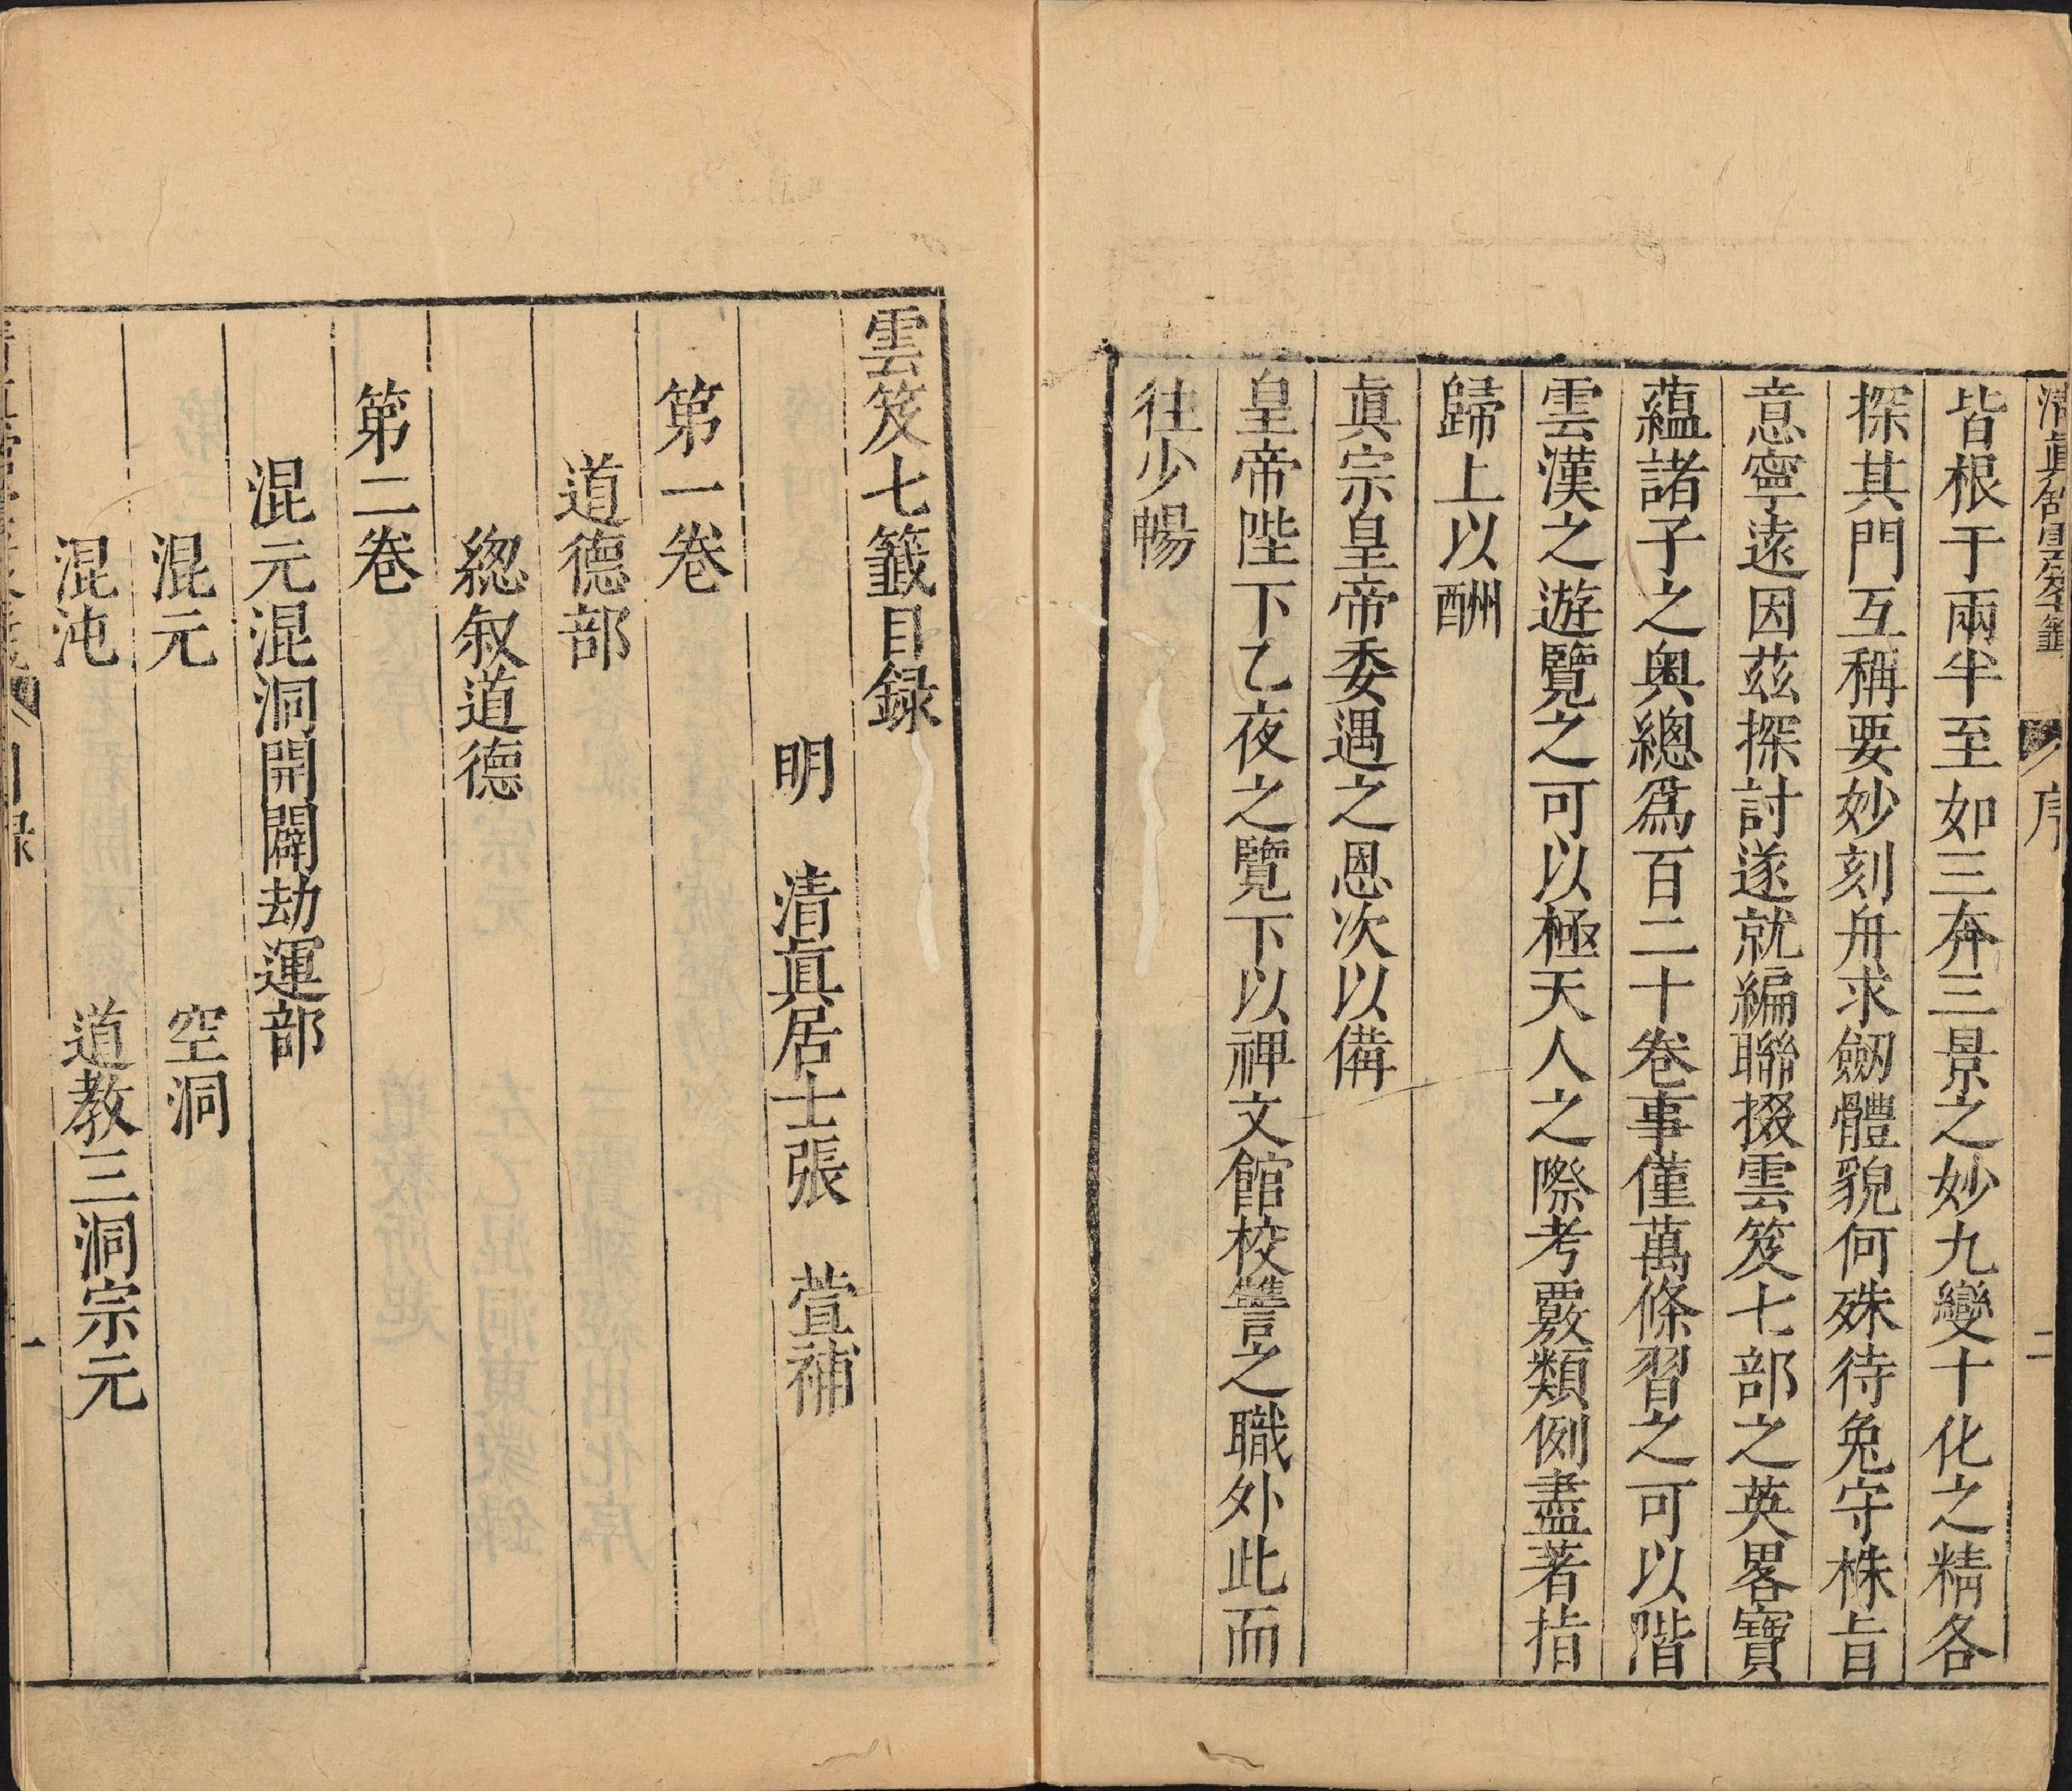 皆根于兩半至如三奔三景之妙九變十化之精各
探其門互稱要妙刻舟求劒體貌何殊待兔守株旨
意寧遠因茲探討遂就編聯掇雲笈七部之英畧寶
蘊諸子之奥總爲百二十卷事僅萬條習之可以階
雲漢之遊覽之可以極天人之際考覈類例盡著指
歸上以酬
眞宗皇帝委遇之恩次以備
皇帝陛下乙夜之覽下以裨文館校讐之職外此而
往少暢
雲笈七籤目録
明 清眞居士張 萱補
第一卷
道德部
緫叙道德
第二卷
混元混洞開闢劫運部
混元 空洞
混沌 道教三洞宗元